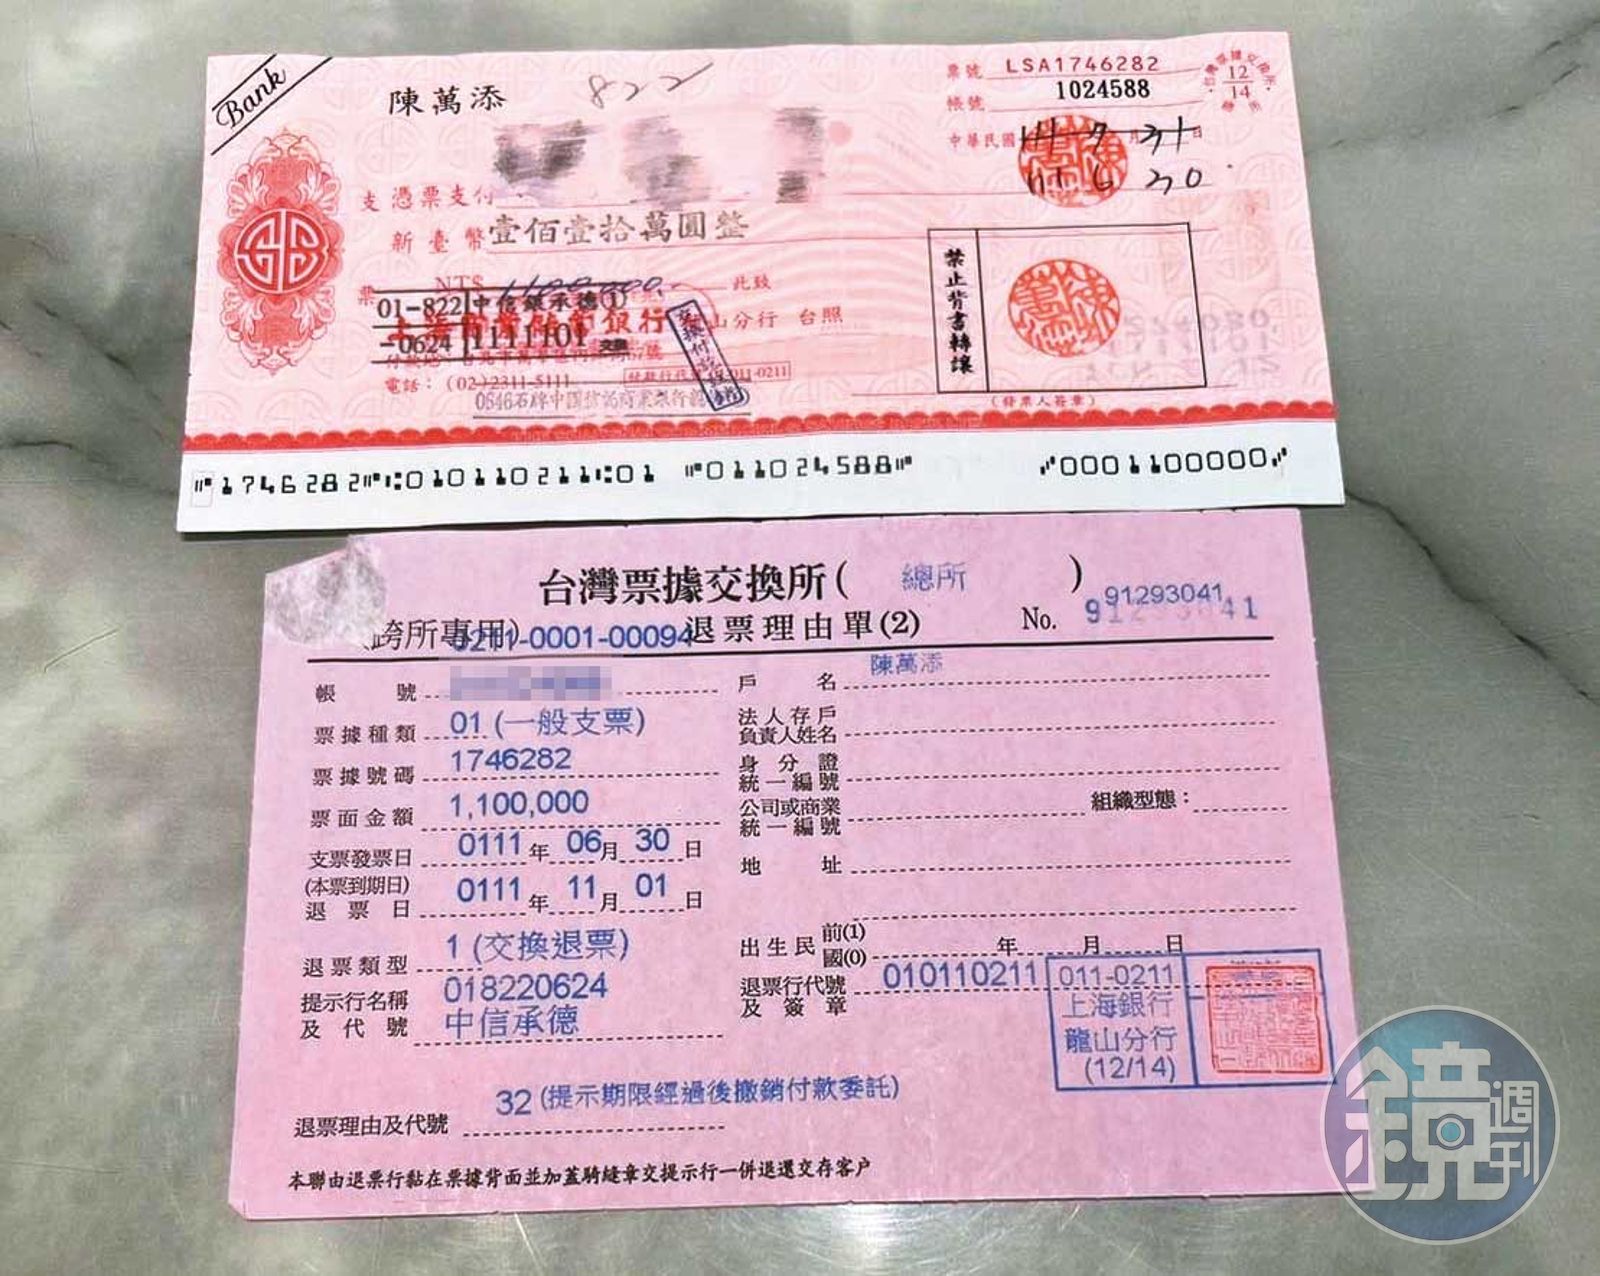 Bank
陳萬添
822
票號 LSA1746282
帳號 1024588
12
14
中華民國 111 7 月 31 日
111 6 30
憑票支付
新臺幣壹佰壹拾萬圓整
NT$ 1,100,000.- 此致
01-822 中信銀承德(1)
-0624 1111101 交換
山分行 台照
電話：(02)2311-5111
011-0211
0646石牌中國信託商業銀行
禁止背書轉讓
(發票人簽章)
⑈1746282⑈⑆010110211⑆01 ⑈011024588⑈ ⑇0001100000⑇
台灣票據交換所( 總所 )
(跨所專用) 0211-0001-00094 退票理由單(2) No. 91293041
91293041
帳號
戶名 陳萬添
票據種類 01 (一般支票)
法人存戶
負責人姓名
票據號碼 1746282
身分證
統一編號
票面金額 1,100,000
公司或商業
統一編號
組織型態：
支票發票日 0111 年 06 月 30 日
(本票到期日)
地址
退票日 0111 年 11 月 01 日
退票類型 1 (交換退票)
出生民 前(1)
國(0) 年 月 日
提示行名稱 018220624
及代號 中信承德
退票行代號 010110211
及簽章
011-0211
上海銀行
龍山分行
(12/14)
退票理由及代號 32 (提示期限經過後撤銷付款委託)
本聯由退票行黏在票據背面並加蓋騎縫章交提示行一併退還交存客戶
鏡週刊